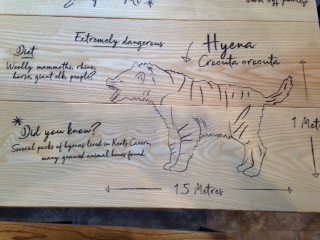 Extremely dangerous
Hyena
Crocuta crocuta
Diet
Woolly mammoths, rhino,
horse, giant elk, people?
Did you know?
Several packs of hyenas lived in Kents Cavern,
many gnawed animal bones found
1 Met
1.5 Metres